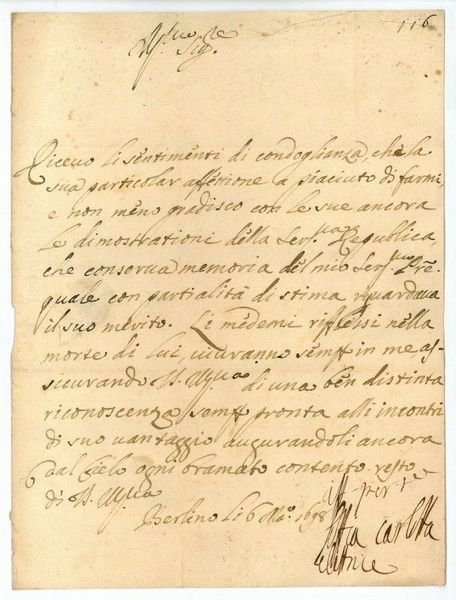 116
Ill.mo Sig.re
Ricevo li sentimenti di condoglianza, che la
sua particolar affettione a piaciuto di farmi
e non meno gradisco con le sue ancora
le dimostrationi della Ser.ma Republica,
che conserva memoria del mio Ser.mo Prē
quale con partialità di stima riguardava
il suo merito. Li medemi riflessi nella
morte di lui, viveranno semp in me as-
sicurando di una ben distinta
riconoscenza semp pronta alli incontri
di suo vantaggio augurandoli ancora
dal Cielo ogni bramato contento resto
di
Berlino li 6 1698
carlotta